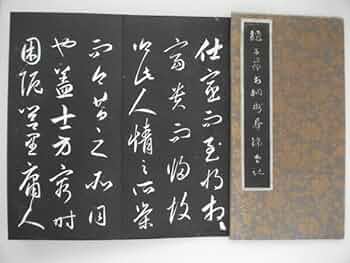 趙子昂書相州晝錦堂記
仕宦而至將相
富貴而歸故
鄉此人情之所榮
而今昔之所同
也蓋士方窮時
困阨閭里庸人